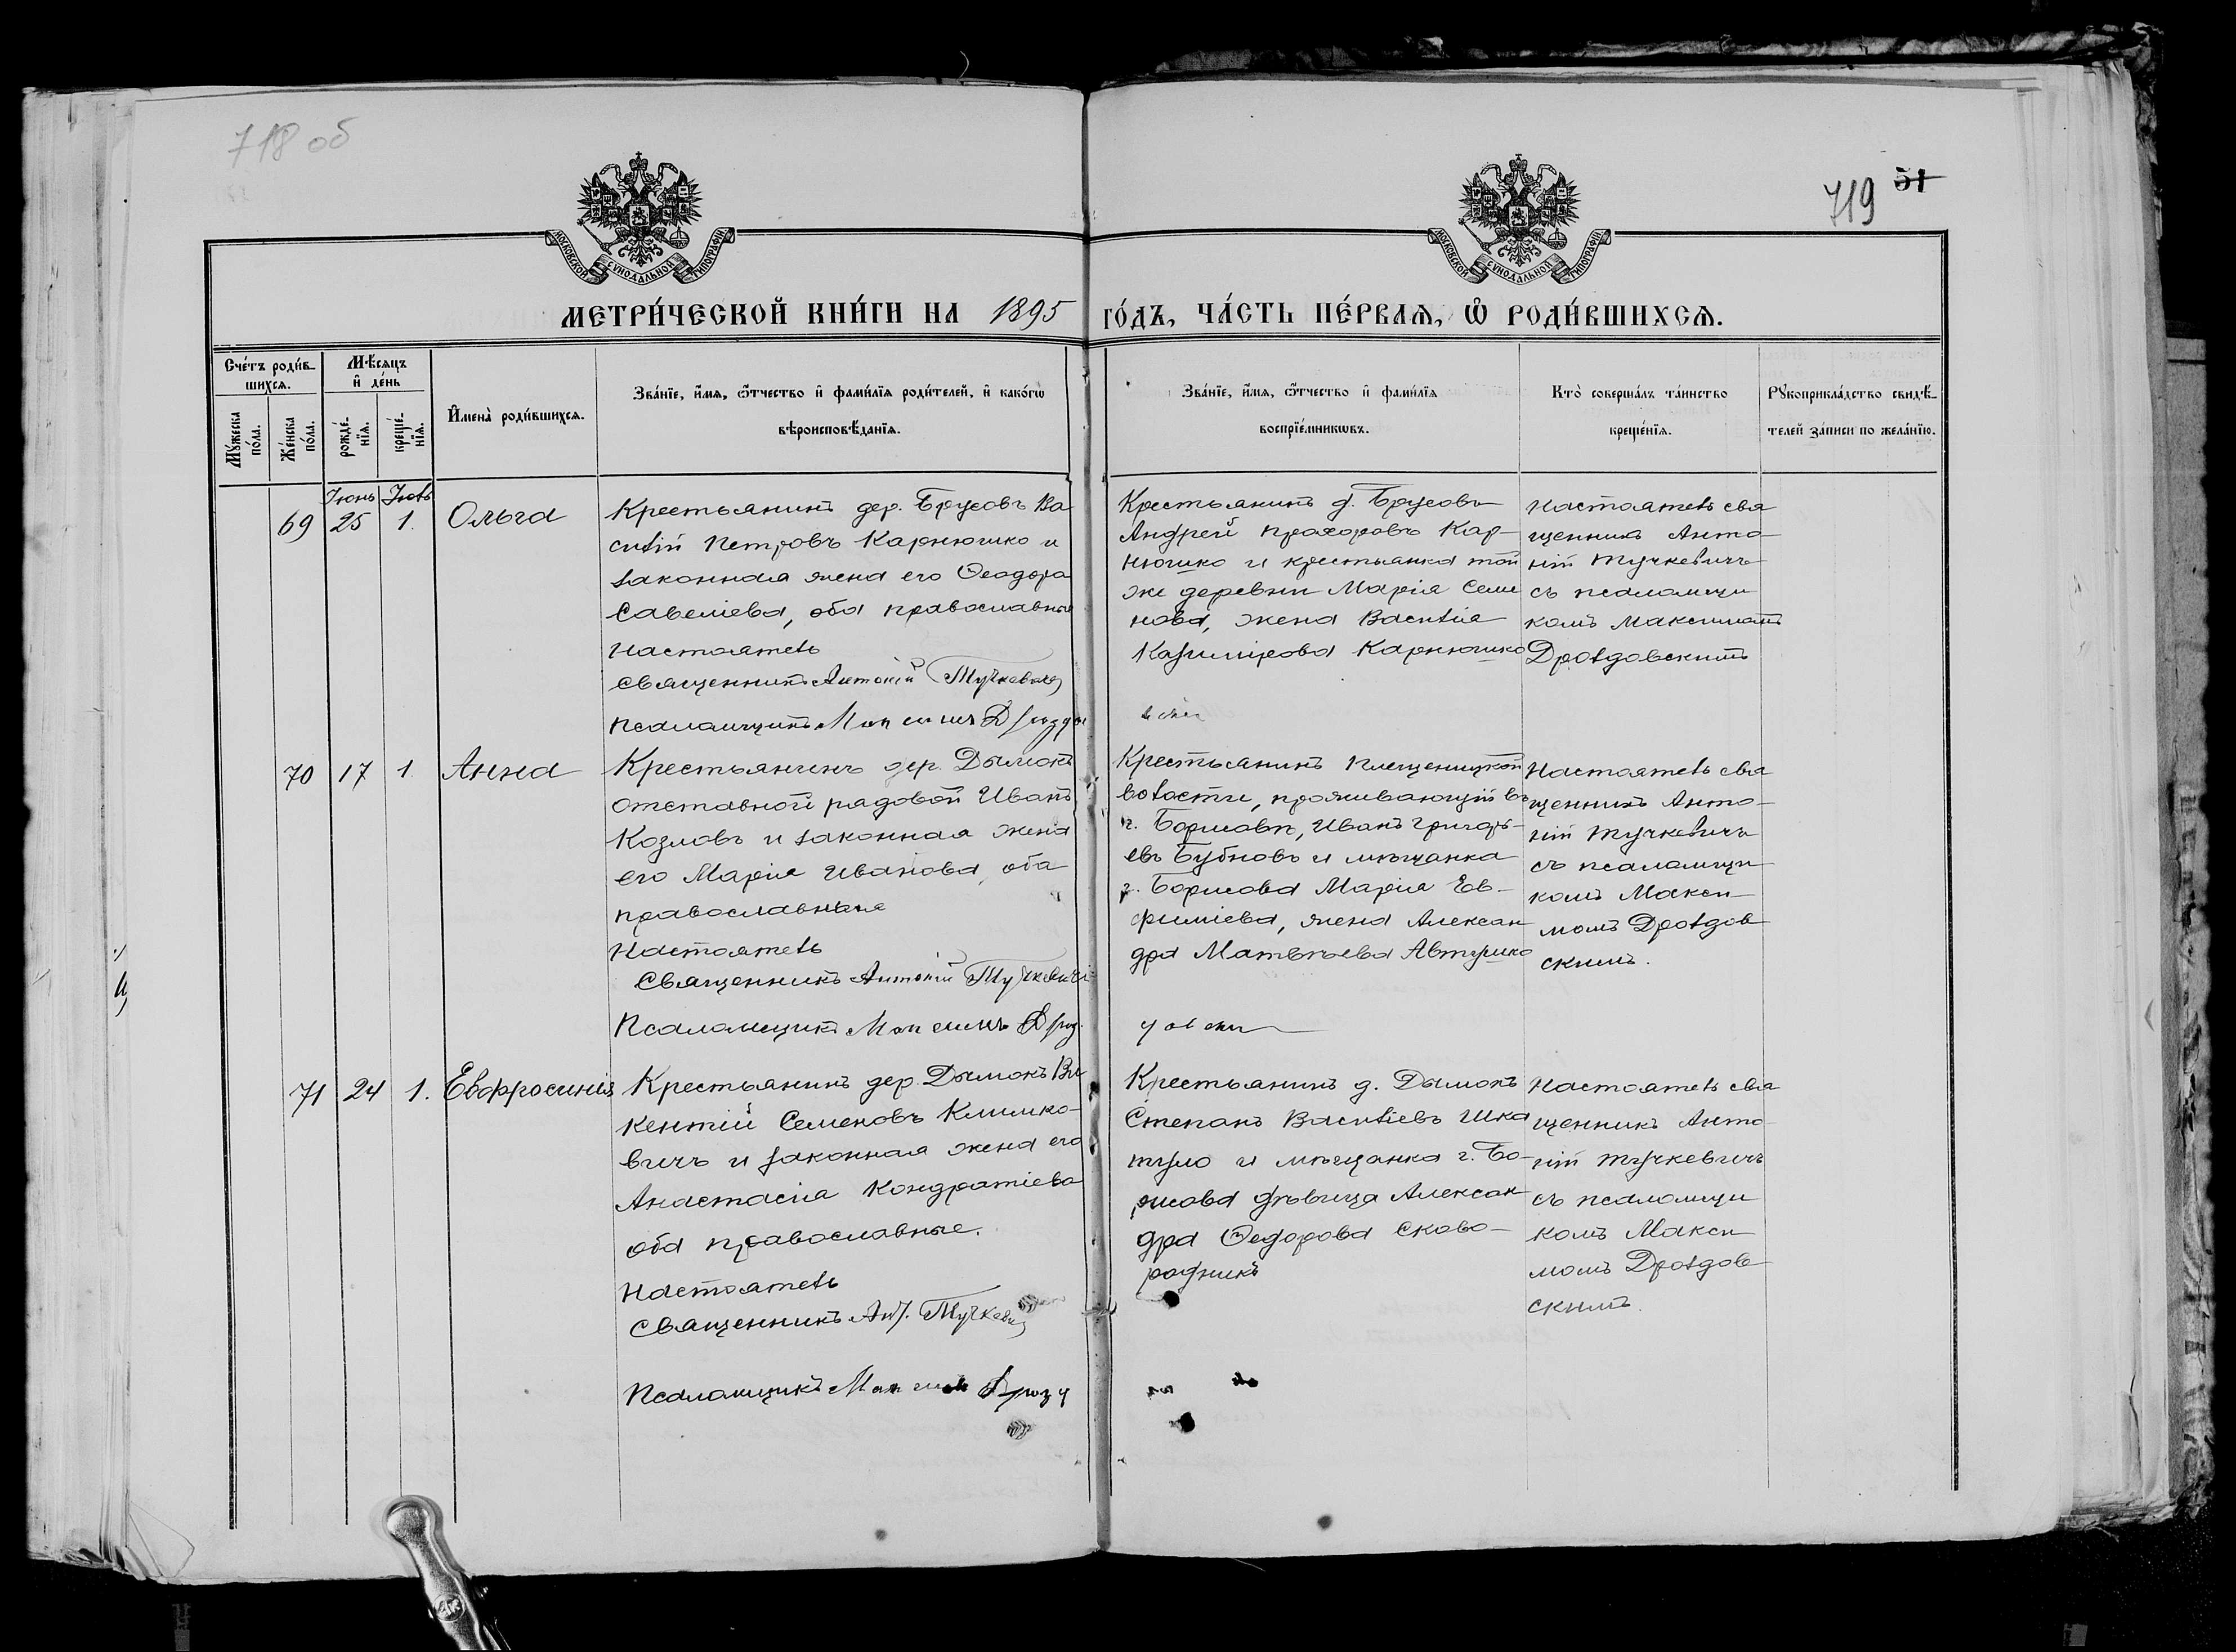 718 об
719 51
МОСКОВСКОЙ СѴНОДАЛЬНОЙ ТИПОГРАФІИ
МОСКОВСКОЙ СѴНОДАЛЬНОЙ ТИПОГРАФІИ
МЕТРИ́ЧЕСКОЙ КНИ́ГИ НА 1895 ГО́ДЪ, ЧА́СТЬ ПЕ́РВАѦ, Ѡ҆ РОДИ́ВШИХСѦ.
Сче́тъ роди́в-
шихсѧ.
Мꙋ́жеска
по́ла.
Же́нска
по́ла.
Мѣ́сѧцъ
и҆ де́нь
рожде́-
нїѧ.
креще́-
нїѧ.
И҆мена̀ роди́вшихсѧ.
Зва́нїе, и҆́мѧ, ѻ҆́тчество и҆ фами́лїѧ роди́телей, и҆ како́гѡ
вѣроисповѣ́данїѧ.
Зва́нїе, и҆́мѧ, ѻ҆́тчество и҆ фами́лїѧ
воспрїе́мникѡвъ.
Кто̀ соверша́лъ та́инство
креще́нїѧ.
Рꙋкоприкла́дство свидѣ́-
телей за́писи по жела́нїю.
Іюнь Іюль
69 25 1. Ольга
Крестьянинъ дер. Брусовъ Ва
силій Петровъ Карнюшко и
законная жена его Ѳеодора
Савеліева, оба православные
Настоятель
Священникъ Антоній Тучкевичъ
Псаломщикъ Максимъ Дрозд
овскій
Крестьянинъ д. Брусовъ
Андрей Прохоровъ Кар-
нюшко и крестьянка той
же деревни Марія Семе
нова, жена Василія
Казимірова Карнюшко
Настоятель свя
щенникъ Анто-
ній Тучкевичъ
съ псаломщи
комъ Максимомъ
Дроздовскимъ
70 17 1. Анна
Крестьянинъ дер. Дымокъ
отставной рядовой Иванъ
Козловъ и законная жена
его Марія Иванова, оба
православные
Настоятель
Священникъ Антоній Тучкевичъ
Псаломщикъ Максимъ Дроз
довскій
Крестьянинъ Плещеницкой
волости, проживающій въ
г. Борисовѣ, Иванъ Григорь-
евъ Бубновъ и мѣщанка
г. Борисова Марія Ев-
фиміева, жена Алексан
дра Матвѣева Автушко
Настоятель свя
щенникъ Анто-
ній Тучкевичъ
съ псаломщи
комъ Макси
момъ Дроздов
скимъ.
71 24 1. Евфросинія
Крестьянинъ дер. Дымокъ Ви
кентій Семеновъ Климко-
вичъ и законная жена его
Анастасія Кондратіева
оба православные.
Настоятель
Священникъ Ант. Тучкевичъ
Псаломщикъ Максимъ Дрозд
Крестьянинъ д. Дымокъ
Степанъ Василіевъ Шка
туло и мѣщанка г. Бо-
рисова дѣвица Алексан
дра Ѳедорова Сково-
родникъ
Настоятель свя
щенникъ Анто
ній Тучкевичъ
съ псаломщи
комъ Макси
момъ Дроздов
скимъ.